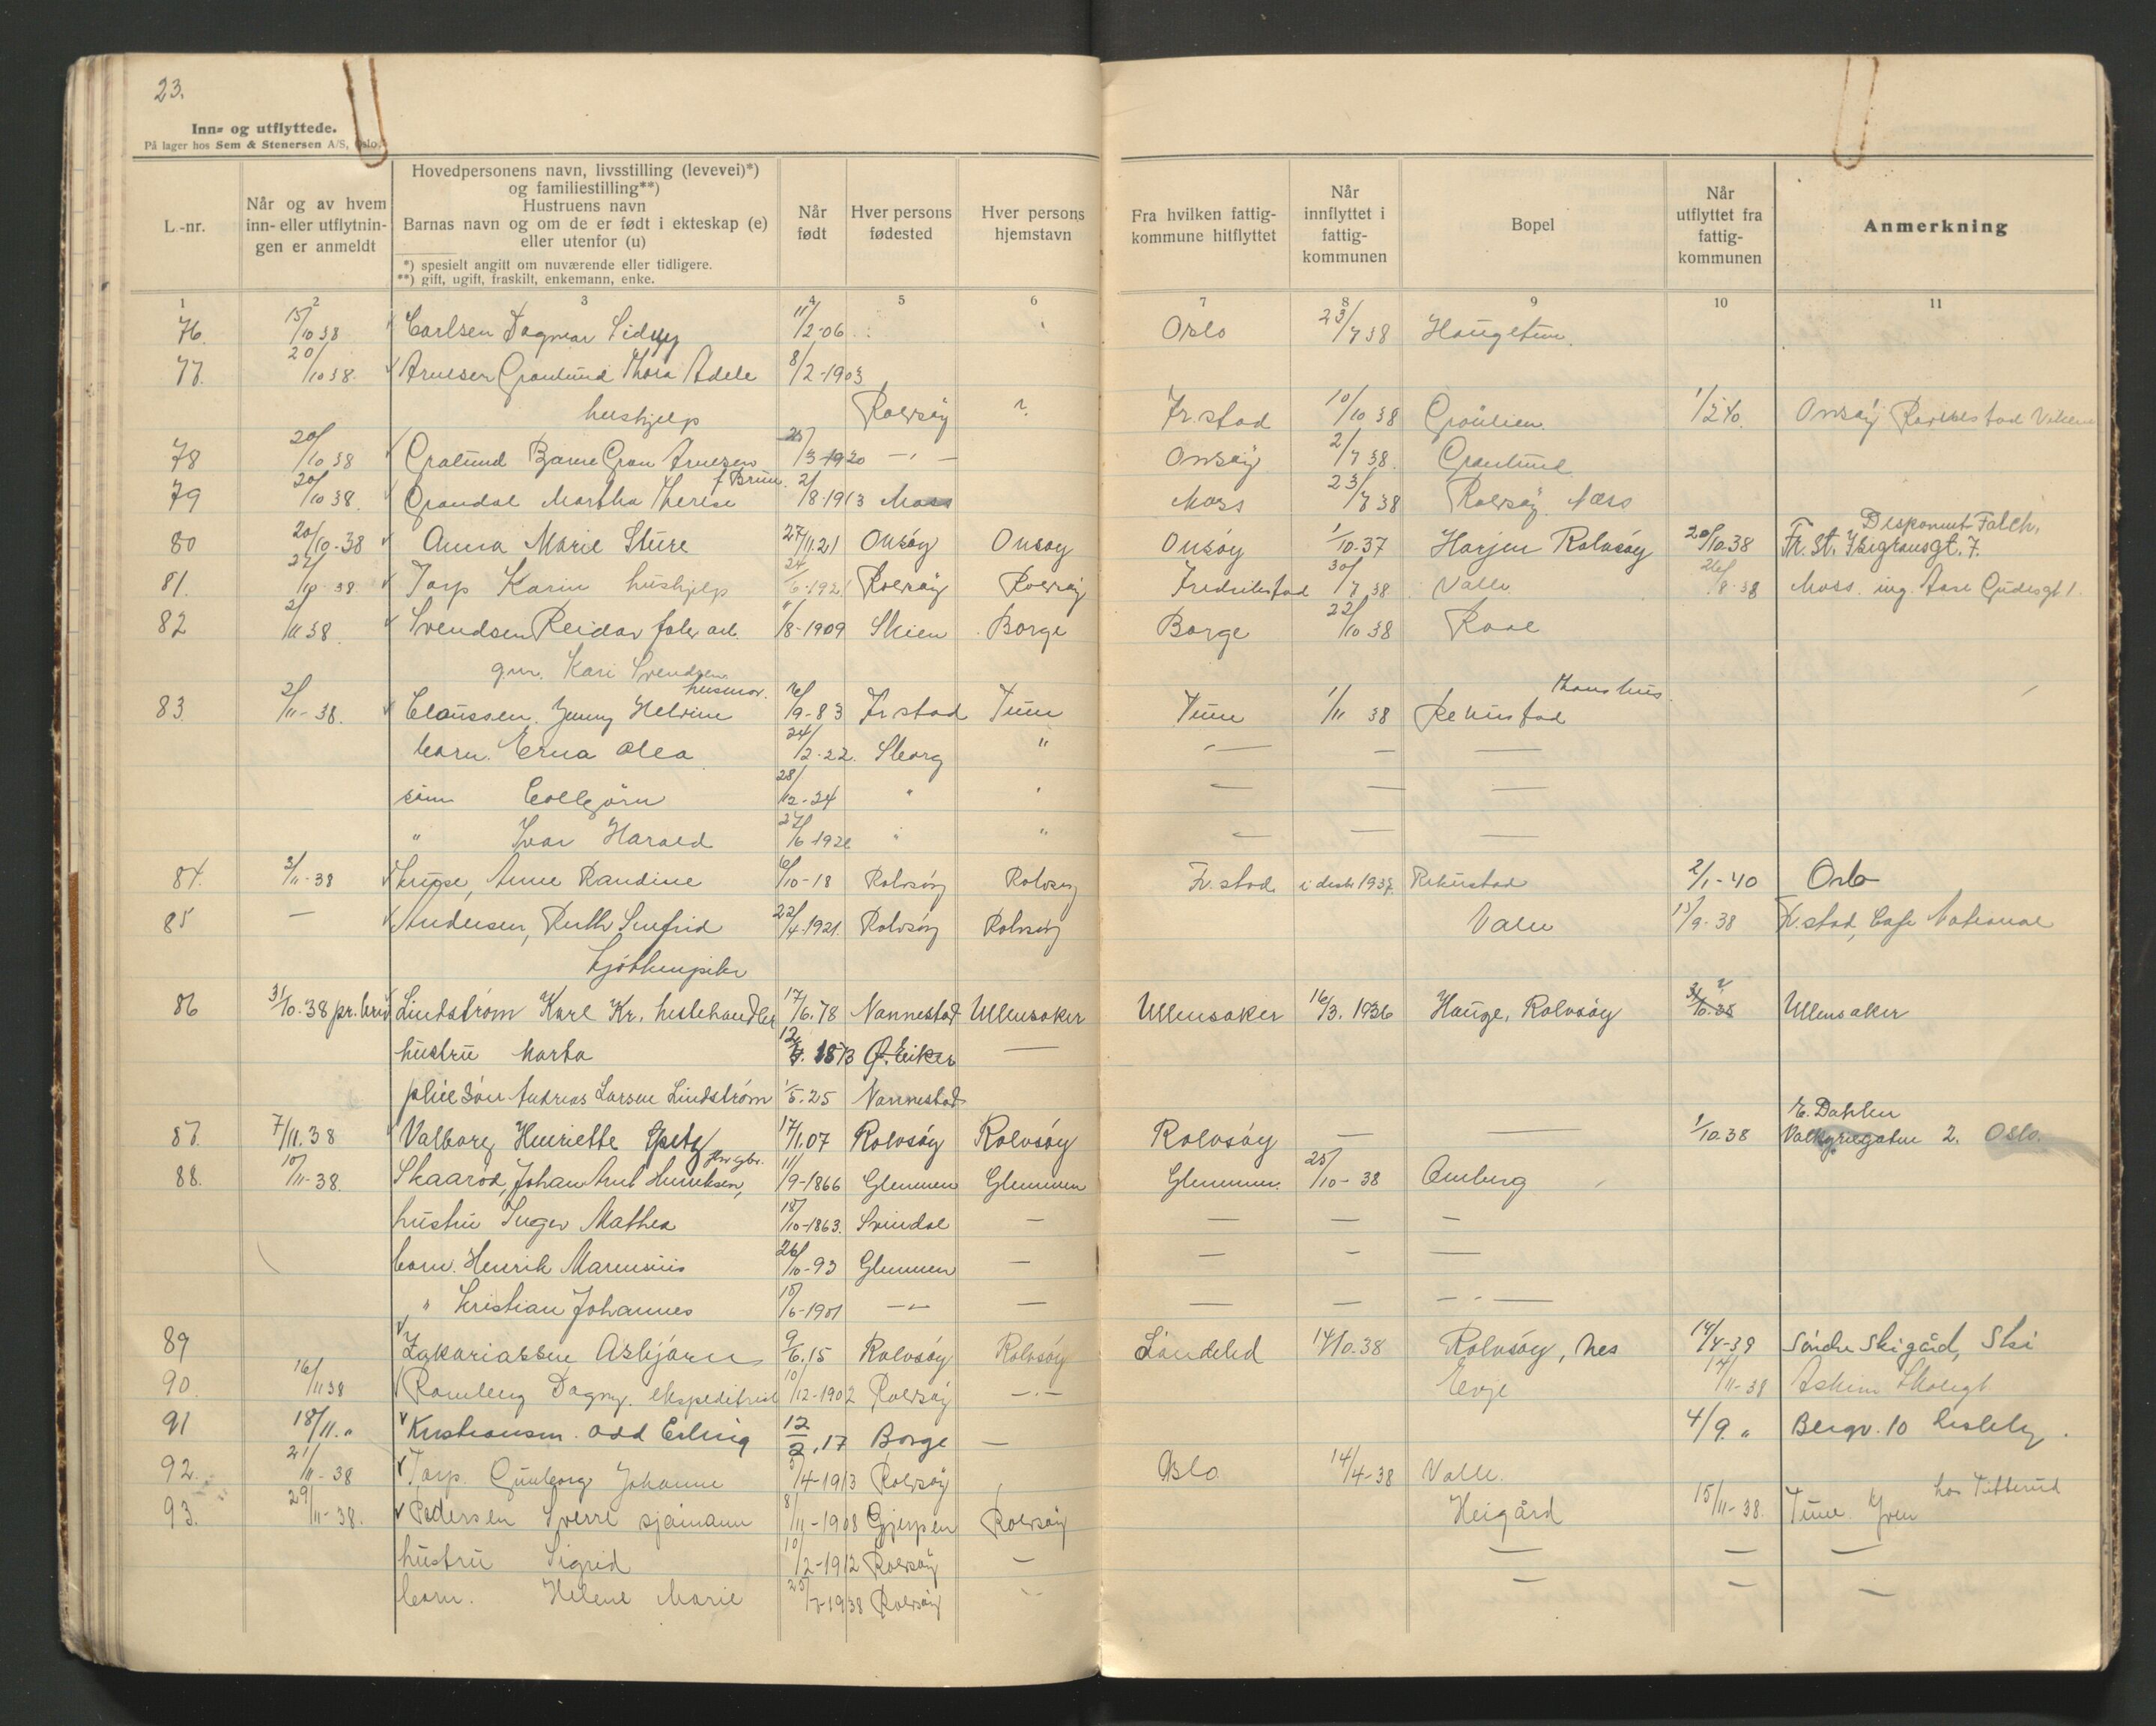 23.
Inn- og utflyttede.
På lager hos Sem & Stenersen A/S, Oslo.
L.-nr.
Når og av hvem inn- eller utflytnin- gen er anmeldt
Hovedpersonens navn, livsstilling (levevei)*)
og familiestilling**)
Hustruens navn
Barnas navn og om de er født i ekteskap (e)
eller utenfor (u)
*) spesielt angitt om nuværende eller tidligere.
**) gift, ugift, fraskilt, enkemann, enke.
Når født
Hver persons fødested
Hver persons hjemstavn
Fra hvilken fattig- kommune hitflyttet
Når innflyttet i fattig- kommunen
Bopel
Når utflyttet fra fattig- kommunen
Anmerkning
1 2 3 4 5 6 7 8 9 10 11
76. 15/10 38 Carlsen Dagmar 11/2-06 Oslo 23/7 38 Haugetun.
77. 20/10 38. Arnesen Granlund Thora Adele 8/2-1903
hushjelp Rolvsøy ? Fr.stad 10/10 38 Grålien. 1/2 40. Onsøy
78 20/10 38 Gralund Bjarne Gran Arnesen 25/3-1920 -"- Onsøy 2/7 38. Granlund
f. Brun.
79 20/10 38. Grandal Martha Therese 2/8-1913 Moss Moss 23/7 38 Rolvsøy. Næs
Disponent Falch,
80 20/10-38 Anna Marie Sture 27/11.21 Onsøy Onsøy Onsøy 1/10-37 Harjen Rolvsøy 20/10.38 Fr. St. 7.
81. 22/10-38. Torp Karin hushjelp 24/6-1921 Rolvsøy Rolvsøy Fredrikstad 30/7 38. Valle 26/8-38 Moss. ing. Aase Gudesgt 1.
82 2/11 38. Svendsen Reidar fabr. arb. 1/8-1909 Skien Borge Borge 22/10 38 Raae
gm. Kari Svendsen.
husmor. hus.
83. 2/11-38. Claussen. Jenny Helvine 16/9-83 Fr stad Tune Tune 1/11 38 Rekustad
barn. Erna Alea 24/2-22. Sborg " — — —
sønn Colbjørn 28/12-24 " " — — —
" Ivar Harald 27/6-1926 " " — — —
84. 3/11-38 Krüpse, Anne Randine 6/10-18 Rolvsøy Rolvsøy Fr.stad i desbr 1937. Rekustad 2/1-40 Oslo
85 — Andersen, Ruth Sunfrid 22/4-1921. Rolvsøy Rolvsøy Valle 15/9-38 Fr.stad, Cafe National
kjøkkenpike
86 31/10.38 pr. brev Lindstrøm Karl Kr. hestehandler 17/6.78 Nannestad Ullensaker Ullensaker 16/3. 1936 Hauge, Rolvsøy 31/10.38 ? Ullensaker
hustru Marta 1873 Ø. Eiker —
pleiesøn Andreas Larsen Lindstrøm 1/5.25 Nannestad
E. Dahlen
87. 7/11.38 Valborg Henriette 17/1.07 Rolvsøy Rolvsøy Rolvsøy — — 1/10.38 Valkyriegaten 2. Oslo.
88. 10/11-38. Skaarød, Johan Arnt Henriksen, 11/9-1866 Glemmen Glemmen Glemmen. 25/10-38 Omberg
hustru Inger Mathea 18/10-1863. Svindal — — — —
barn. Henrik Marensius 26/10-93 Glemmen — — — —
" Kristian Johannes 15/6-1901 -"- — — — —
89 Zakariassen Asbjørn 9/6.15 Rolvsøy Rolvsøy Søndeled 14/10.38 Rolvsøy, Nes 14/4-39 Søndre Skigård, Ski
90. 16/11 38 Ramberg Dagny. ekspeditrise 10/12-1902 Rolvsøy -"- Evje 14/11-38 Askim Skolegt.
91 18/11. " Kristiansen. Odd Erling 12/2.17 Borge — 4/9. " Bergv. 10 Lisleby.
92. 21/11-38 Torp. Gunborg Johanne 5/4-1913 Rolvsøy Oslo 14/4-38 Valle.
93. 29/11-38. Pedersen Sverre sjømann 8/11-1908 Gjerpen Rolvsøy Heigård 15/11-38. Tune. Yven hos Titterud
hustru Sigrid 10/2-1912 Rolvsøy — — — —
barn. Helene Marie 25/7-1938 Rolvsøy -"- — — —